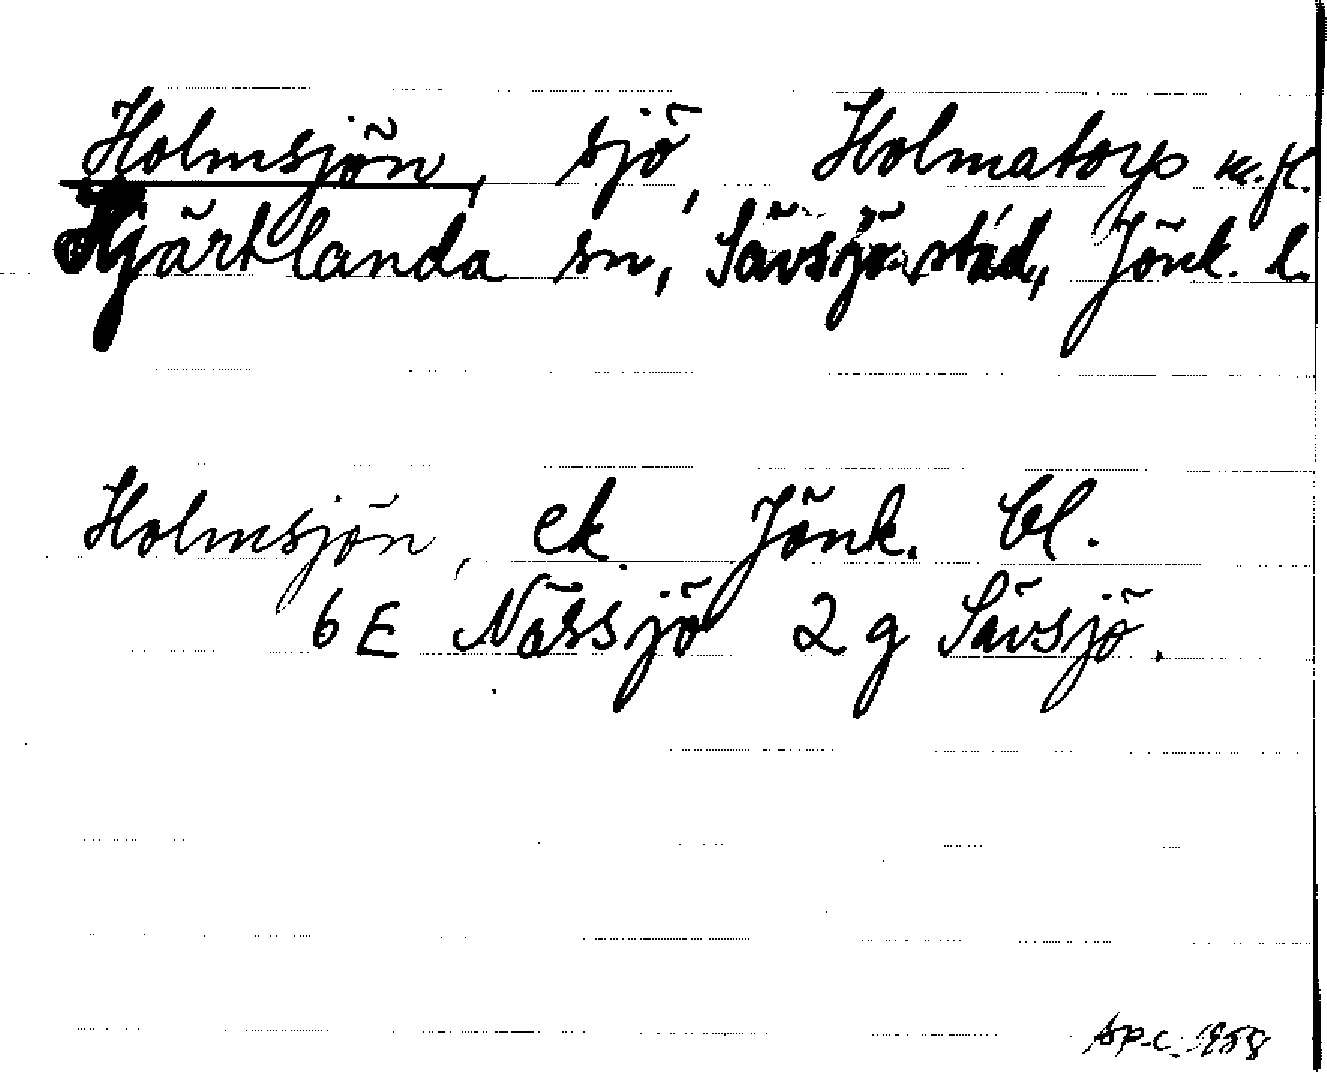 Holmsjön, sjö, Holmatorps m.fl.
Hjärtlanda sn, Sävsjö stad, Jönk. l.
Holmsjön, ek. Jönk. bl.
6 E Nässjö 2 g Sävsjö.
1958